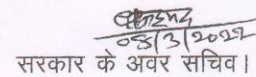 08/3/2022
सरकार के अवर सचिव।